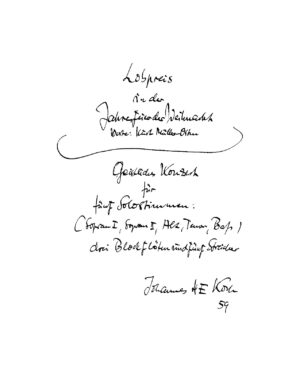 Lobpreis
in der
Jahresfeier der Weihnacht
Worte: Kurt Müller-Osten
Konzert
für
fünf Solostimmen:
(Sopran I, Sopran II, Alt, Tenor, Baß)
drei Blockflöten und fünf Streicher
Johannes H E Koch
59